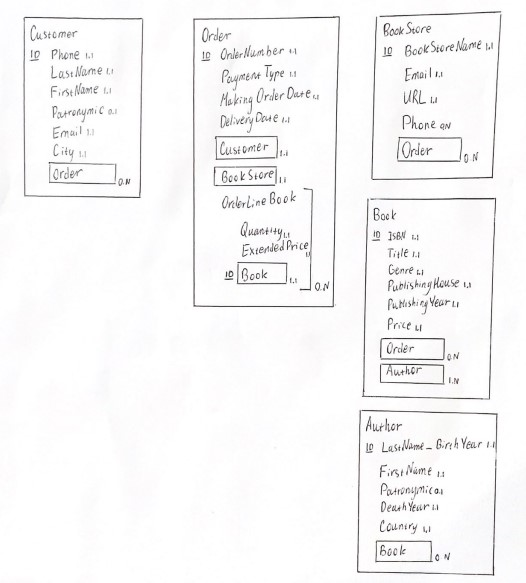 Customer
ID Phone 1.1
LastName 1.1
FirstName 1.1
Patronymic 0.1
Email 1.1
City 1.1
Order 0.N
Order
ID OrderNumber 1.1
Payment Type 1.1
Making Order Date 1.1
Delivery Date 1.1
Customer 1.1
BookStore 1.1
OrderLine Book
Quantity 1.1
ExtendedPrice 1.1
ID Book 1.1
0.N
Book Store
ID BookStoreName 1.1
Email 1.1
URL 1.1
Phone 0.N
Order 0.N
Book
ID ISBN 1.1
Title 1.1
Genre 1.1
Publishing House 1.1
Publishing Year 1.1
Price 1.1
Order 0.N
Author 1.N
Author
ID LastName_BirthYear 1.1
FirstName 1.1
Patronymic 0.1
Death Year 1.1
Country 1.1
Book 0.N